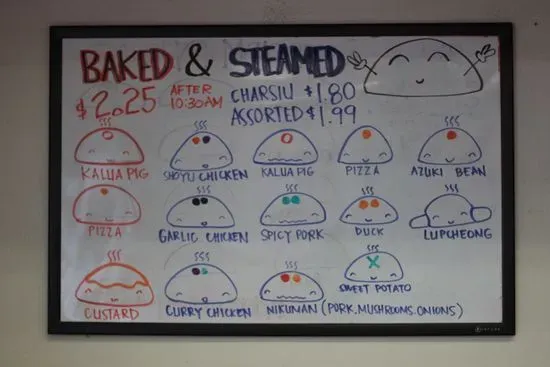 BAKED & STEAMED
$2.25 AFTER 10:30AM
CHARSIU $1.80
ASSORTED $1.99
KALUA PIG SHOYU CHICKEN KALUA PIG PIZZA AZUKI BEAN
PIZZA GARLIC CHICKEN SPICY PORK DUCK LUPCHEONG
SWEET POTATO
CUSTARD CURRY CHICKEN NIKUMAN (PORK, MUSHROOMS, ONIONS)